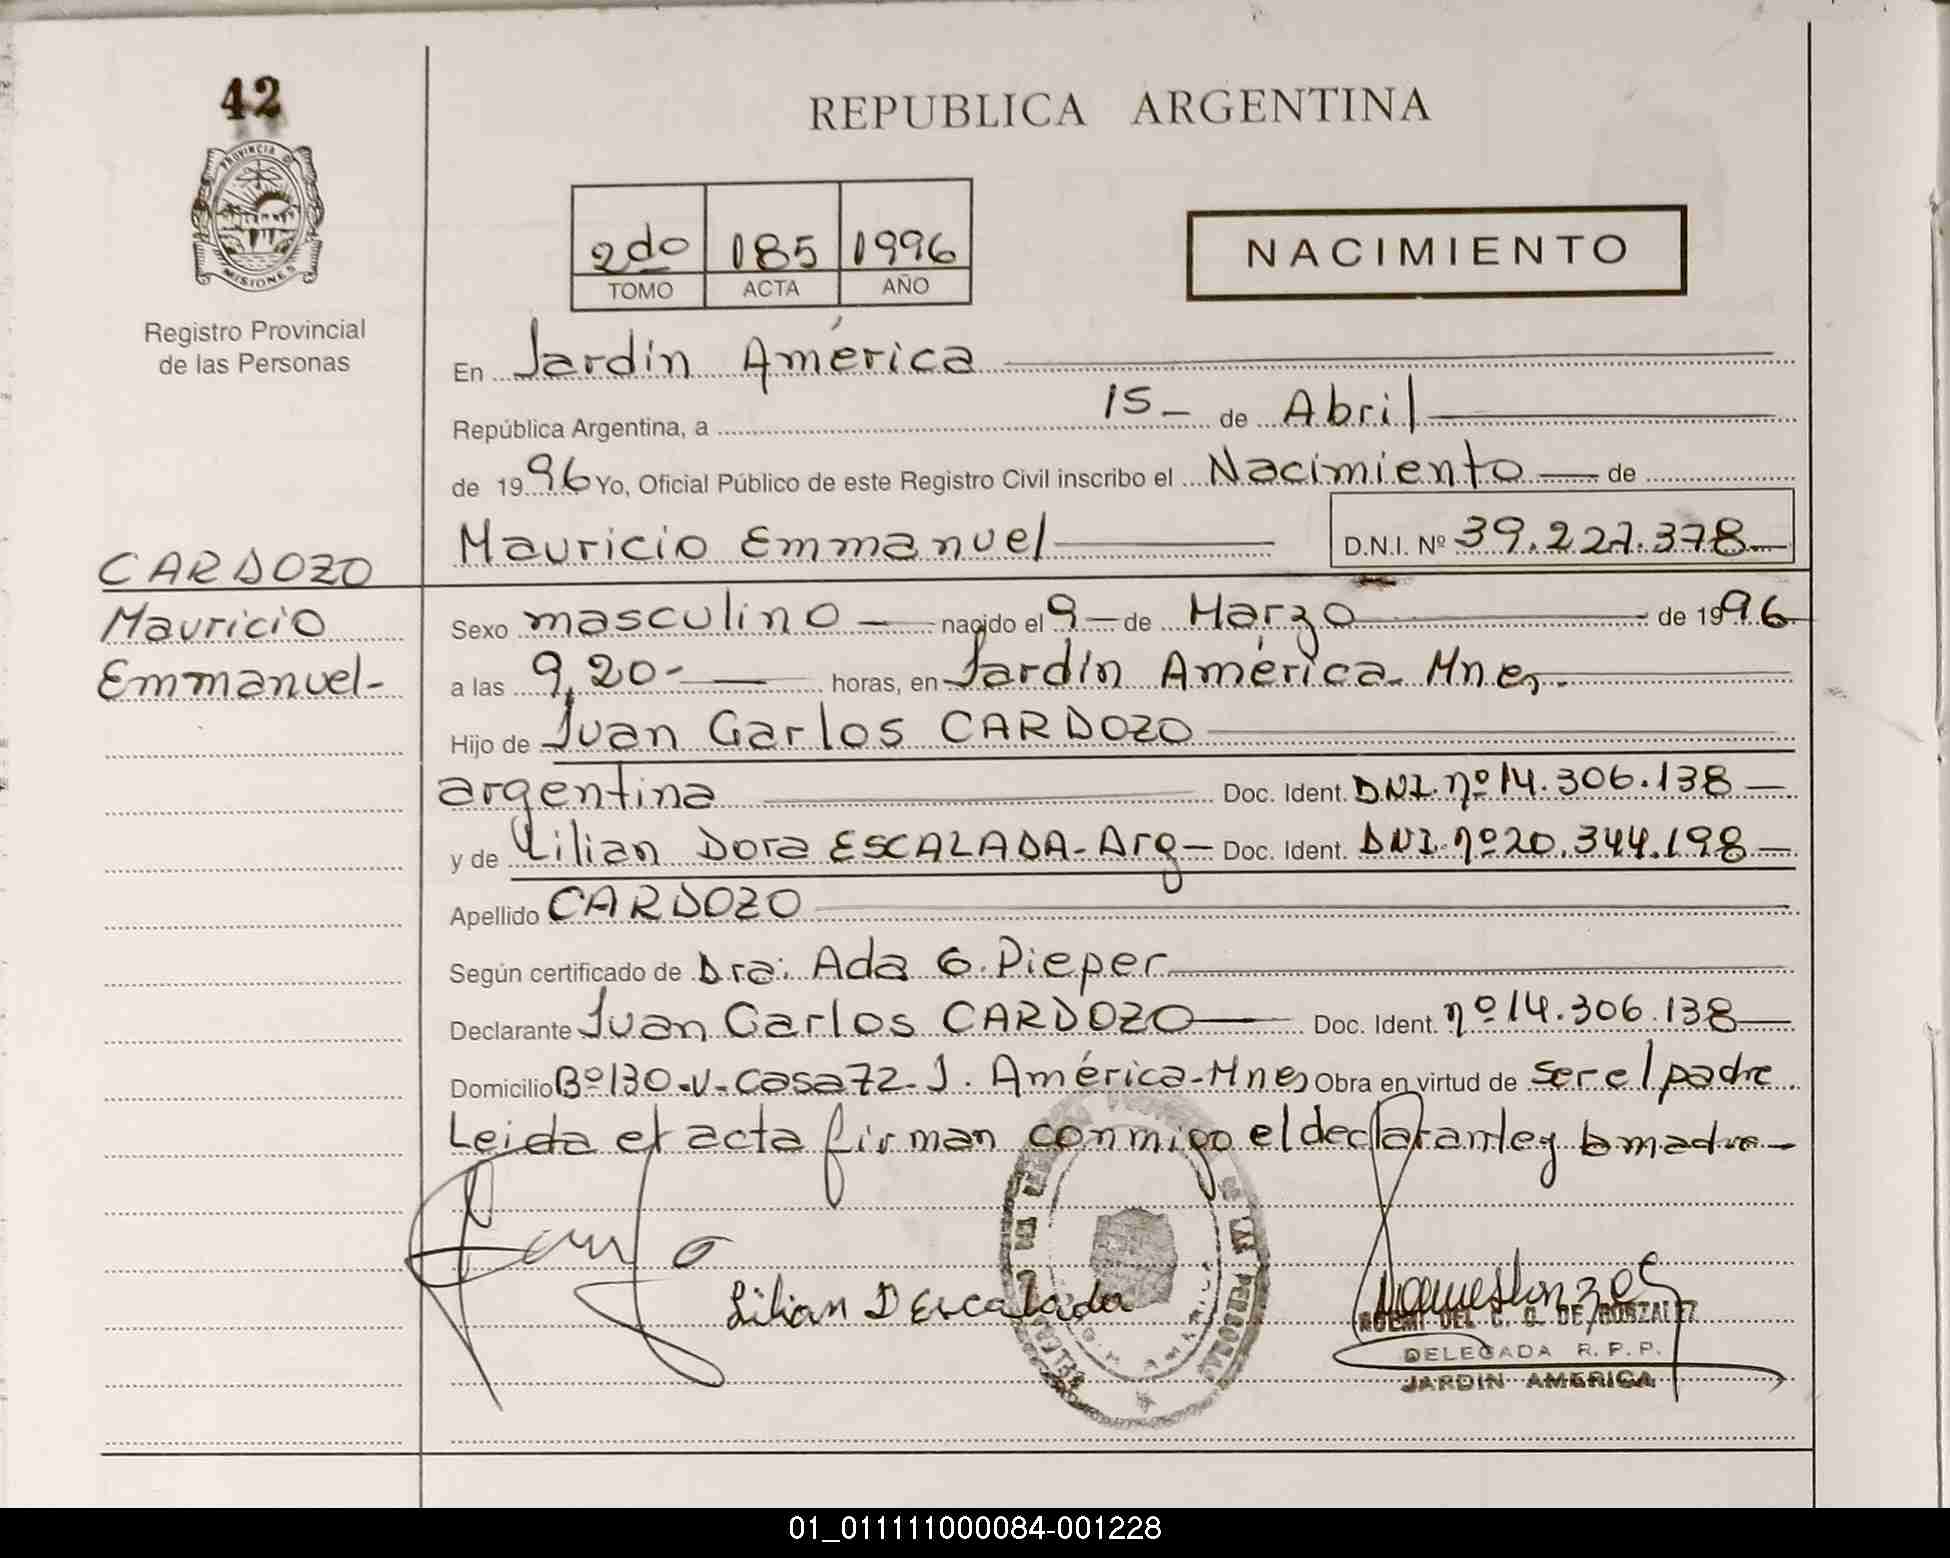 42
PROVINCIA DE
MISIONES
Registro Provincial
de las Personas
REPUBLICA ARGENTINA
2do 185 1996
TOMO ACTA AÑO
NACIMIENTO
En Jardín América
República Argentina, a 15 - de Abril
de 1996 Yo, Oficial Público de este Registro Civil inscribo el Nacimiento de
Mauricio Emmanuel D.N.I. Nº 39.227.378
CARDOZO
Mauricio
Emmanuel-
Sexo masculino nacido el 9 de Marzo de 1996
a las 9,20- horas, en Jardín América- Mnes.
Hijo de Juan Carlos CARDOZO
argentina Doc. Ident. DNI. nº 14.306.138
y de Lilian Dora ESCALADA- Arg- Doc. Ident. DNI. nº 20.344.198
Apellido CARDOZO
Según certificado de Dra: Ada G. Pieper
Declarante Juan Carlos CARDOZO Doc. Ident. nº 14.306.138
Domicilio Bº 130-V-Casa 72-J. América-Mnes Obra en virtud de ser el padre
Leida el acta firman conmigo el declarante y la madre
Lilian D Escalada
DE LAS PERSONAS
NOEMI DEL C. G. DE GONZALEZ
DELEGADA R. P. P.
JARDIN AMERICA
01_011111000084-001228